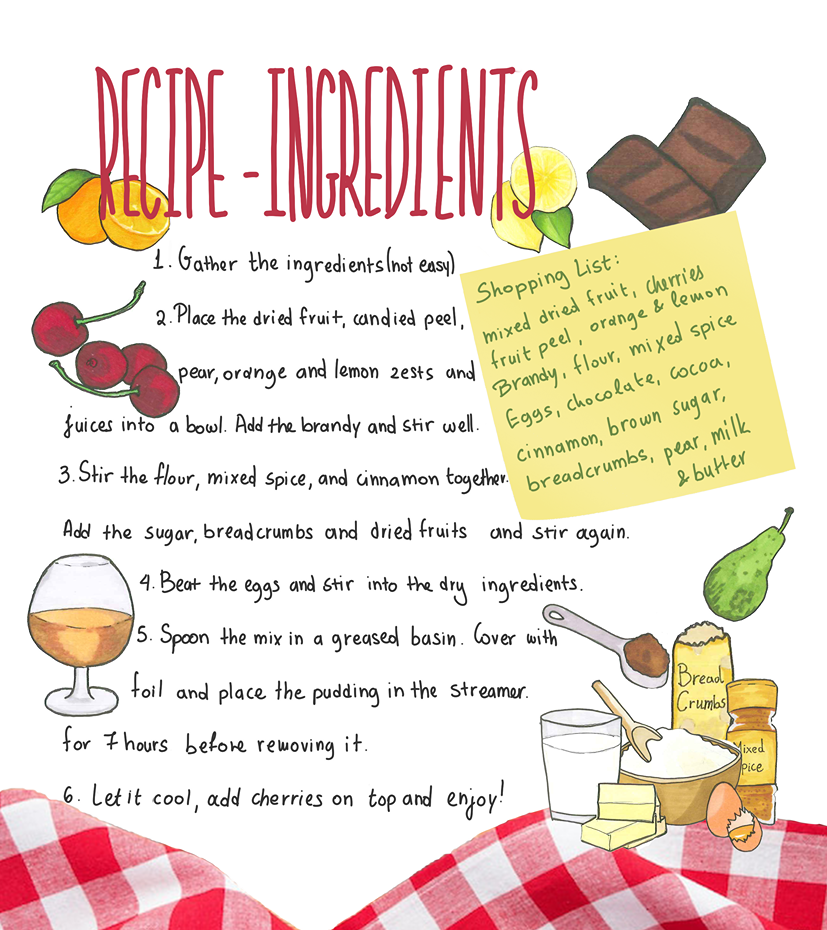 RECIPE - INGREDIENTS
1. Gather the ingredients (not easy)
2. Place the dried fruit, candied peel,
pear, orange and lemon zests and
juices into a bowl. Add the brandy and stir well.
3. Stir the flour, mixed spice, and cinnamon together.
Add the sugar, breadcrumbs and dried fruits and stir again.
4. Beat the eggs and stir into the dry ingredients.
5. Spoon the mix in a greased basin. Cover with
foil and place the pudding in the streamer.
for 7 hours before removing it.
6. Let it cool, add cherries on top and enjoy!
Shopping List:
mixed dried fruit, cherries
fruit peel, orange & lemon
Brandy, flour, mixed spice
Eggs, chocolate, cocoa,
cinnamon, brown sugar,
breadcrumbs, pear, milk
& butter
Bread
Crumbs
Mixed
Spice